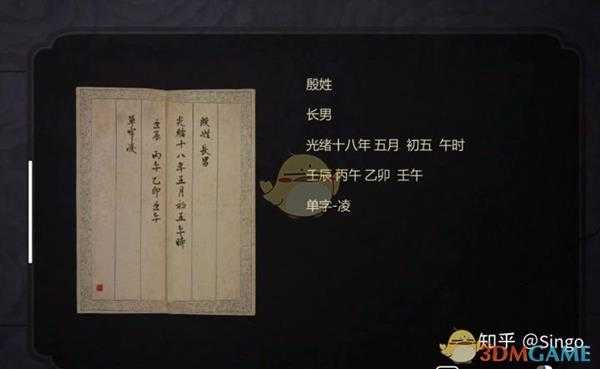 殷姓
长男
光绪十八年 五月 初五 午时
壬辰 丙午 乙卯 壬午
单字-凌
殷姓 長男
光緒十八年五月初五午時
壬辰 丙午 乙卯 壬午
單字凌
知乎 @Singo
3DMGAME